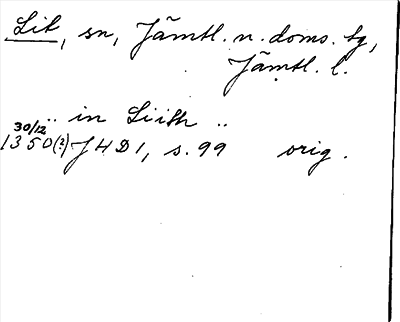 Lit, sn, Jämtl. n. doms. tg,
Jämtl. l.
.. in Liith ..
30/12
1350(?) J H D 1, s. 99 orig.